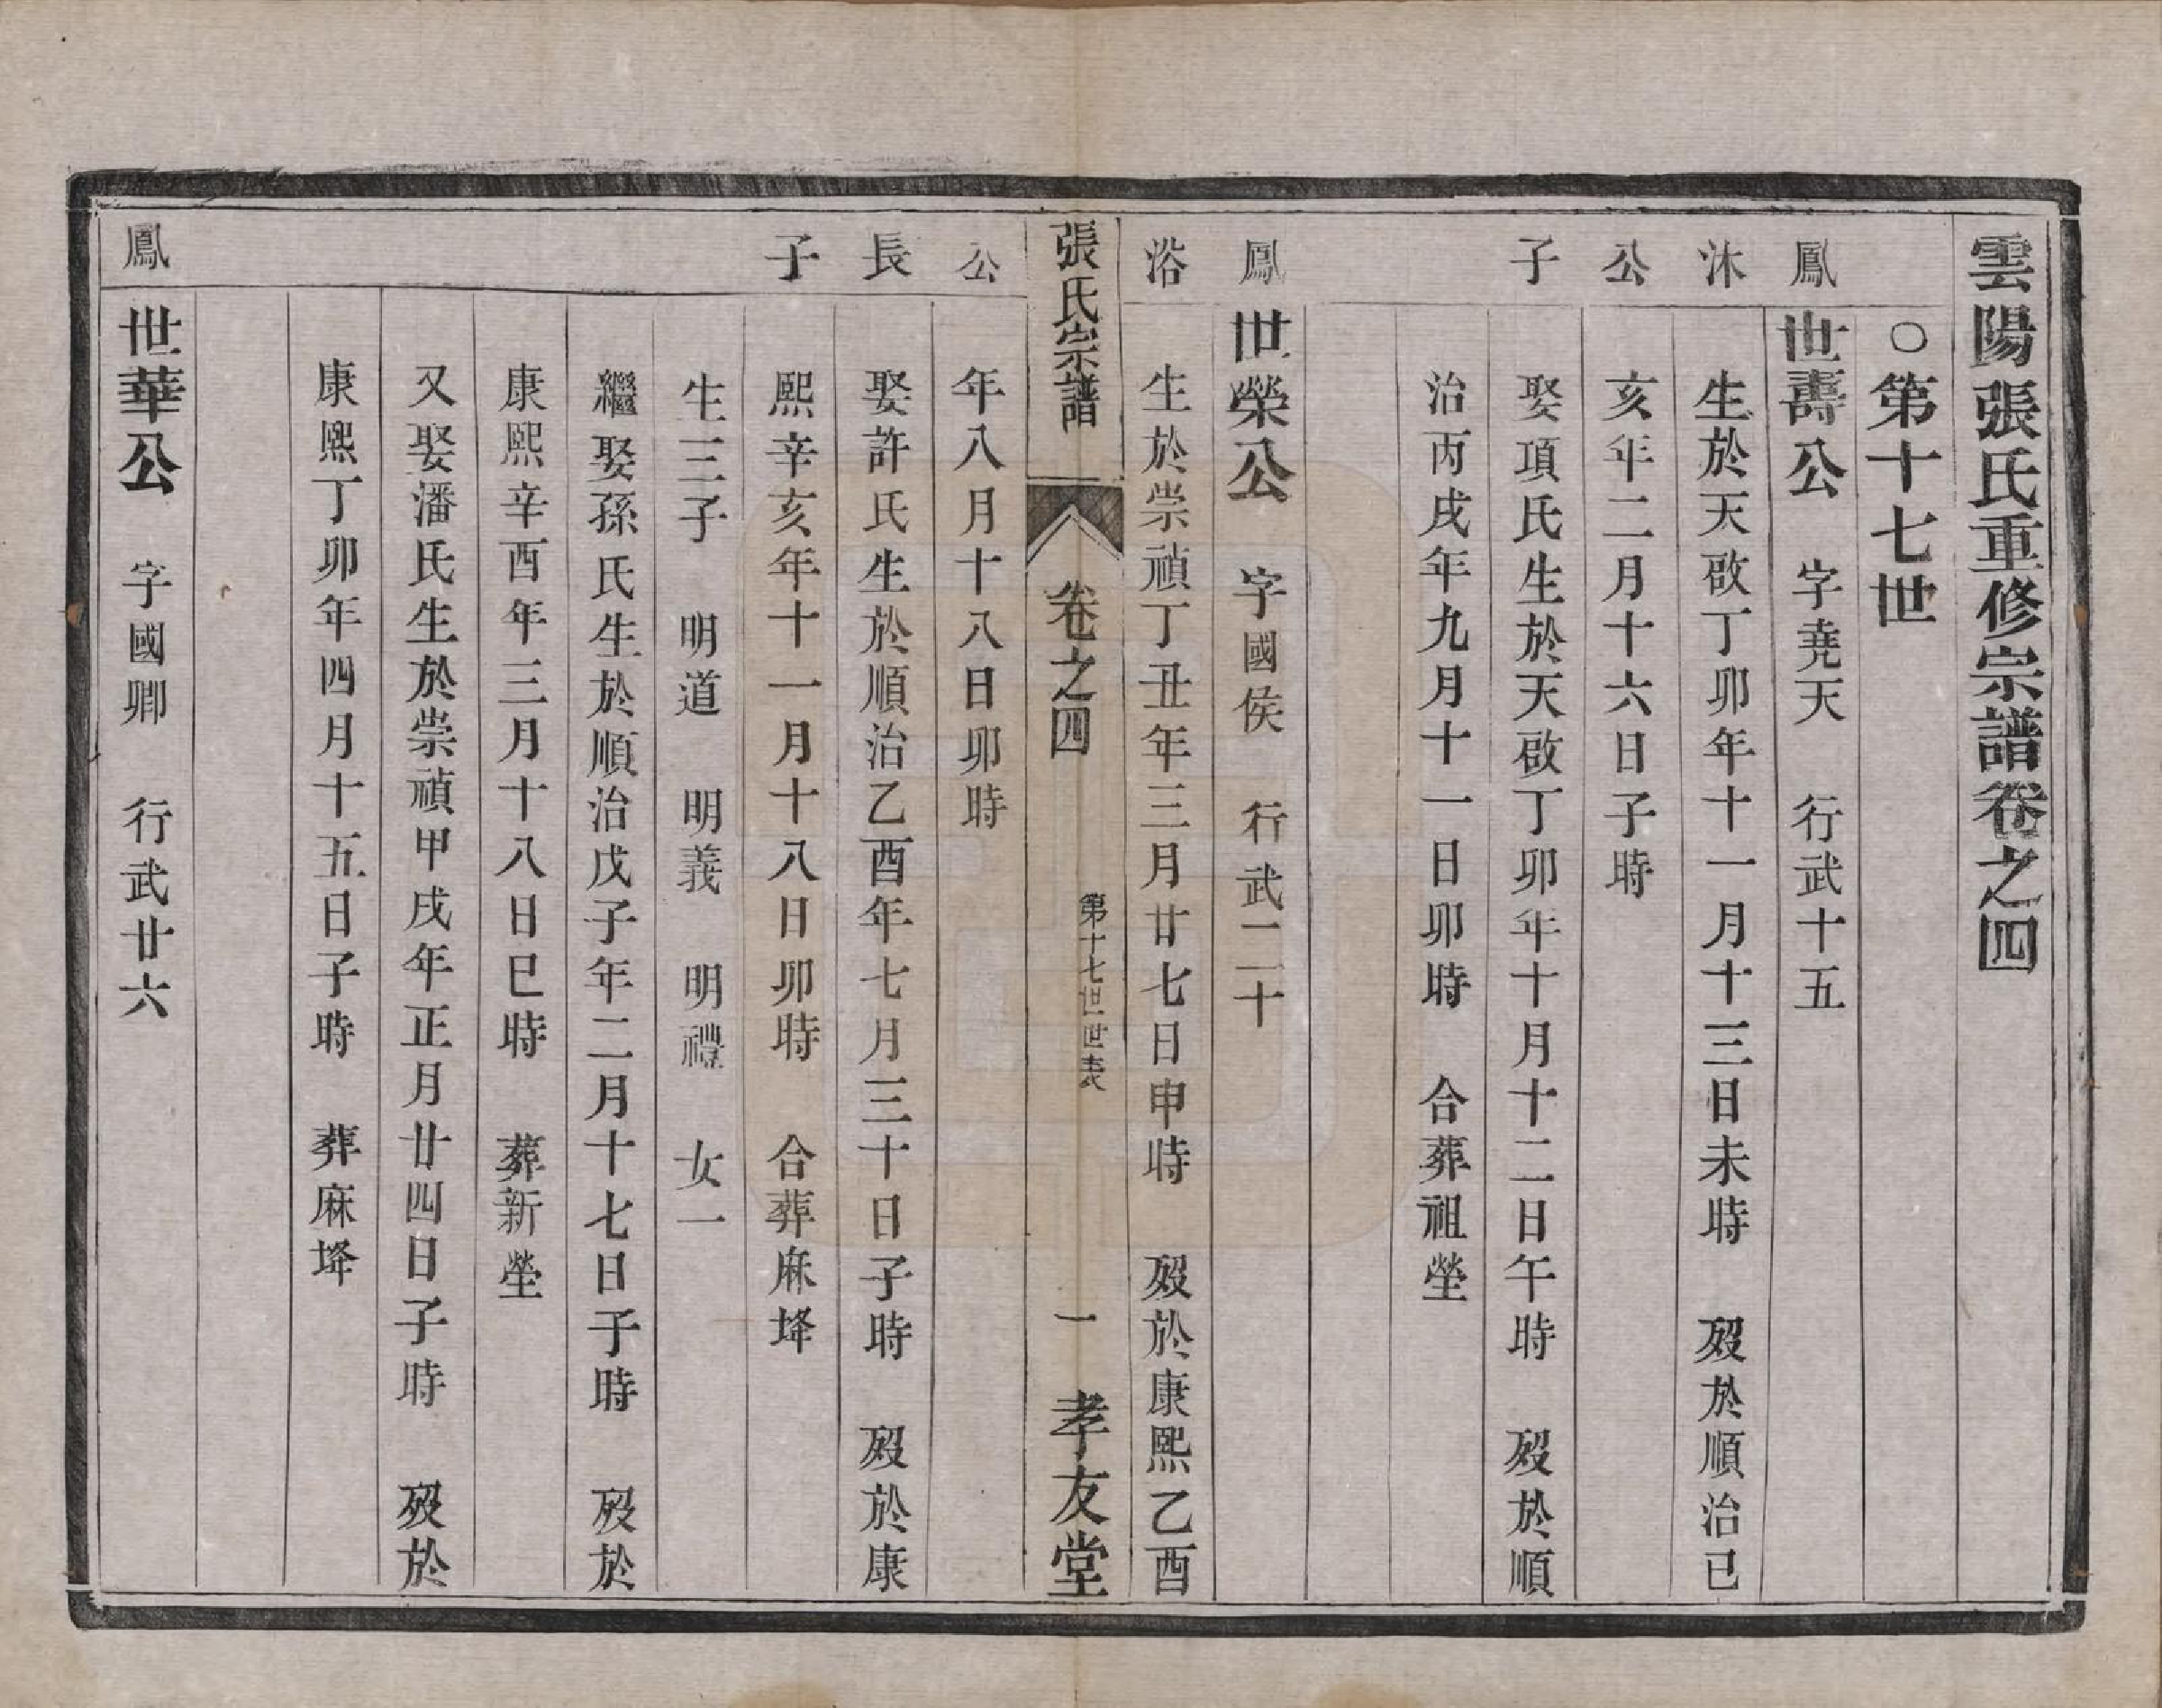 雲陽張氏重修宗譜卷之四
○第十七世
鳳 世壽公 字堯天 行武十五
沐 生於天啟丁卯年十一月十三日未時 歿於順治己
公 亥年二月十六日子時
子 娶項氏生於天啟丁卯年十月十二日午時 歿於順
治丙戌年九月十一日卯時 合葬祖塋
鳳 世榮公 字國侯 行武二十
浴 生於崇禎丁丑年三月廿七日申時 歿於康熙乙酉
張氏宗譜 卷之四 第十七世世表 一 孝友堂
公 年八月十八日卯時
長 娶許氏生於順治乙酉年七月三十日子時 歿於康
子 熙辛亥年十一月十八日卯時 合葬麻埄
生三子 明道 明義 明禮 女一
繼娶孫氏生於順治戊子年二月十七日子時 歿於
康熙辛酉年三月十八日巳時 葬新塋
又娶潘氏生於崇禎甲戌年正月廿四日子時 歿於
康熙丁卯年四月十五日子時 葬麻埄
鳳 世華公 字國卿 行武廿六